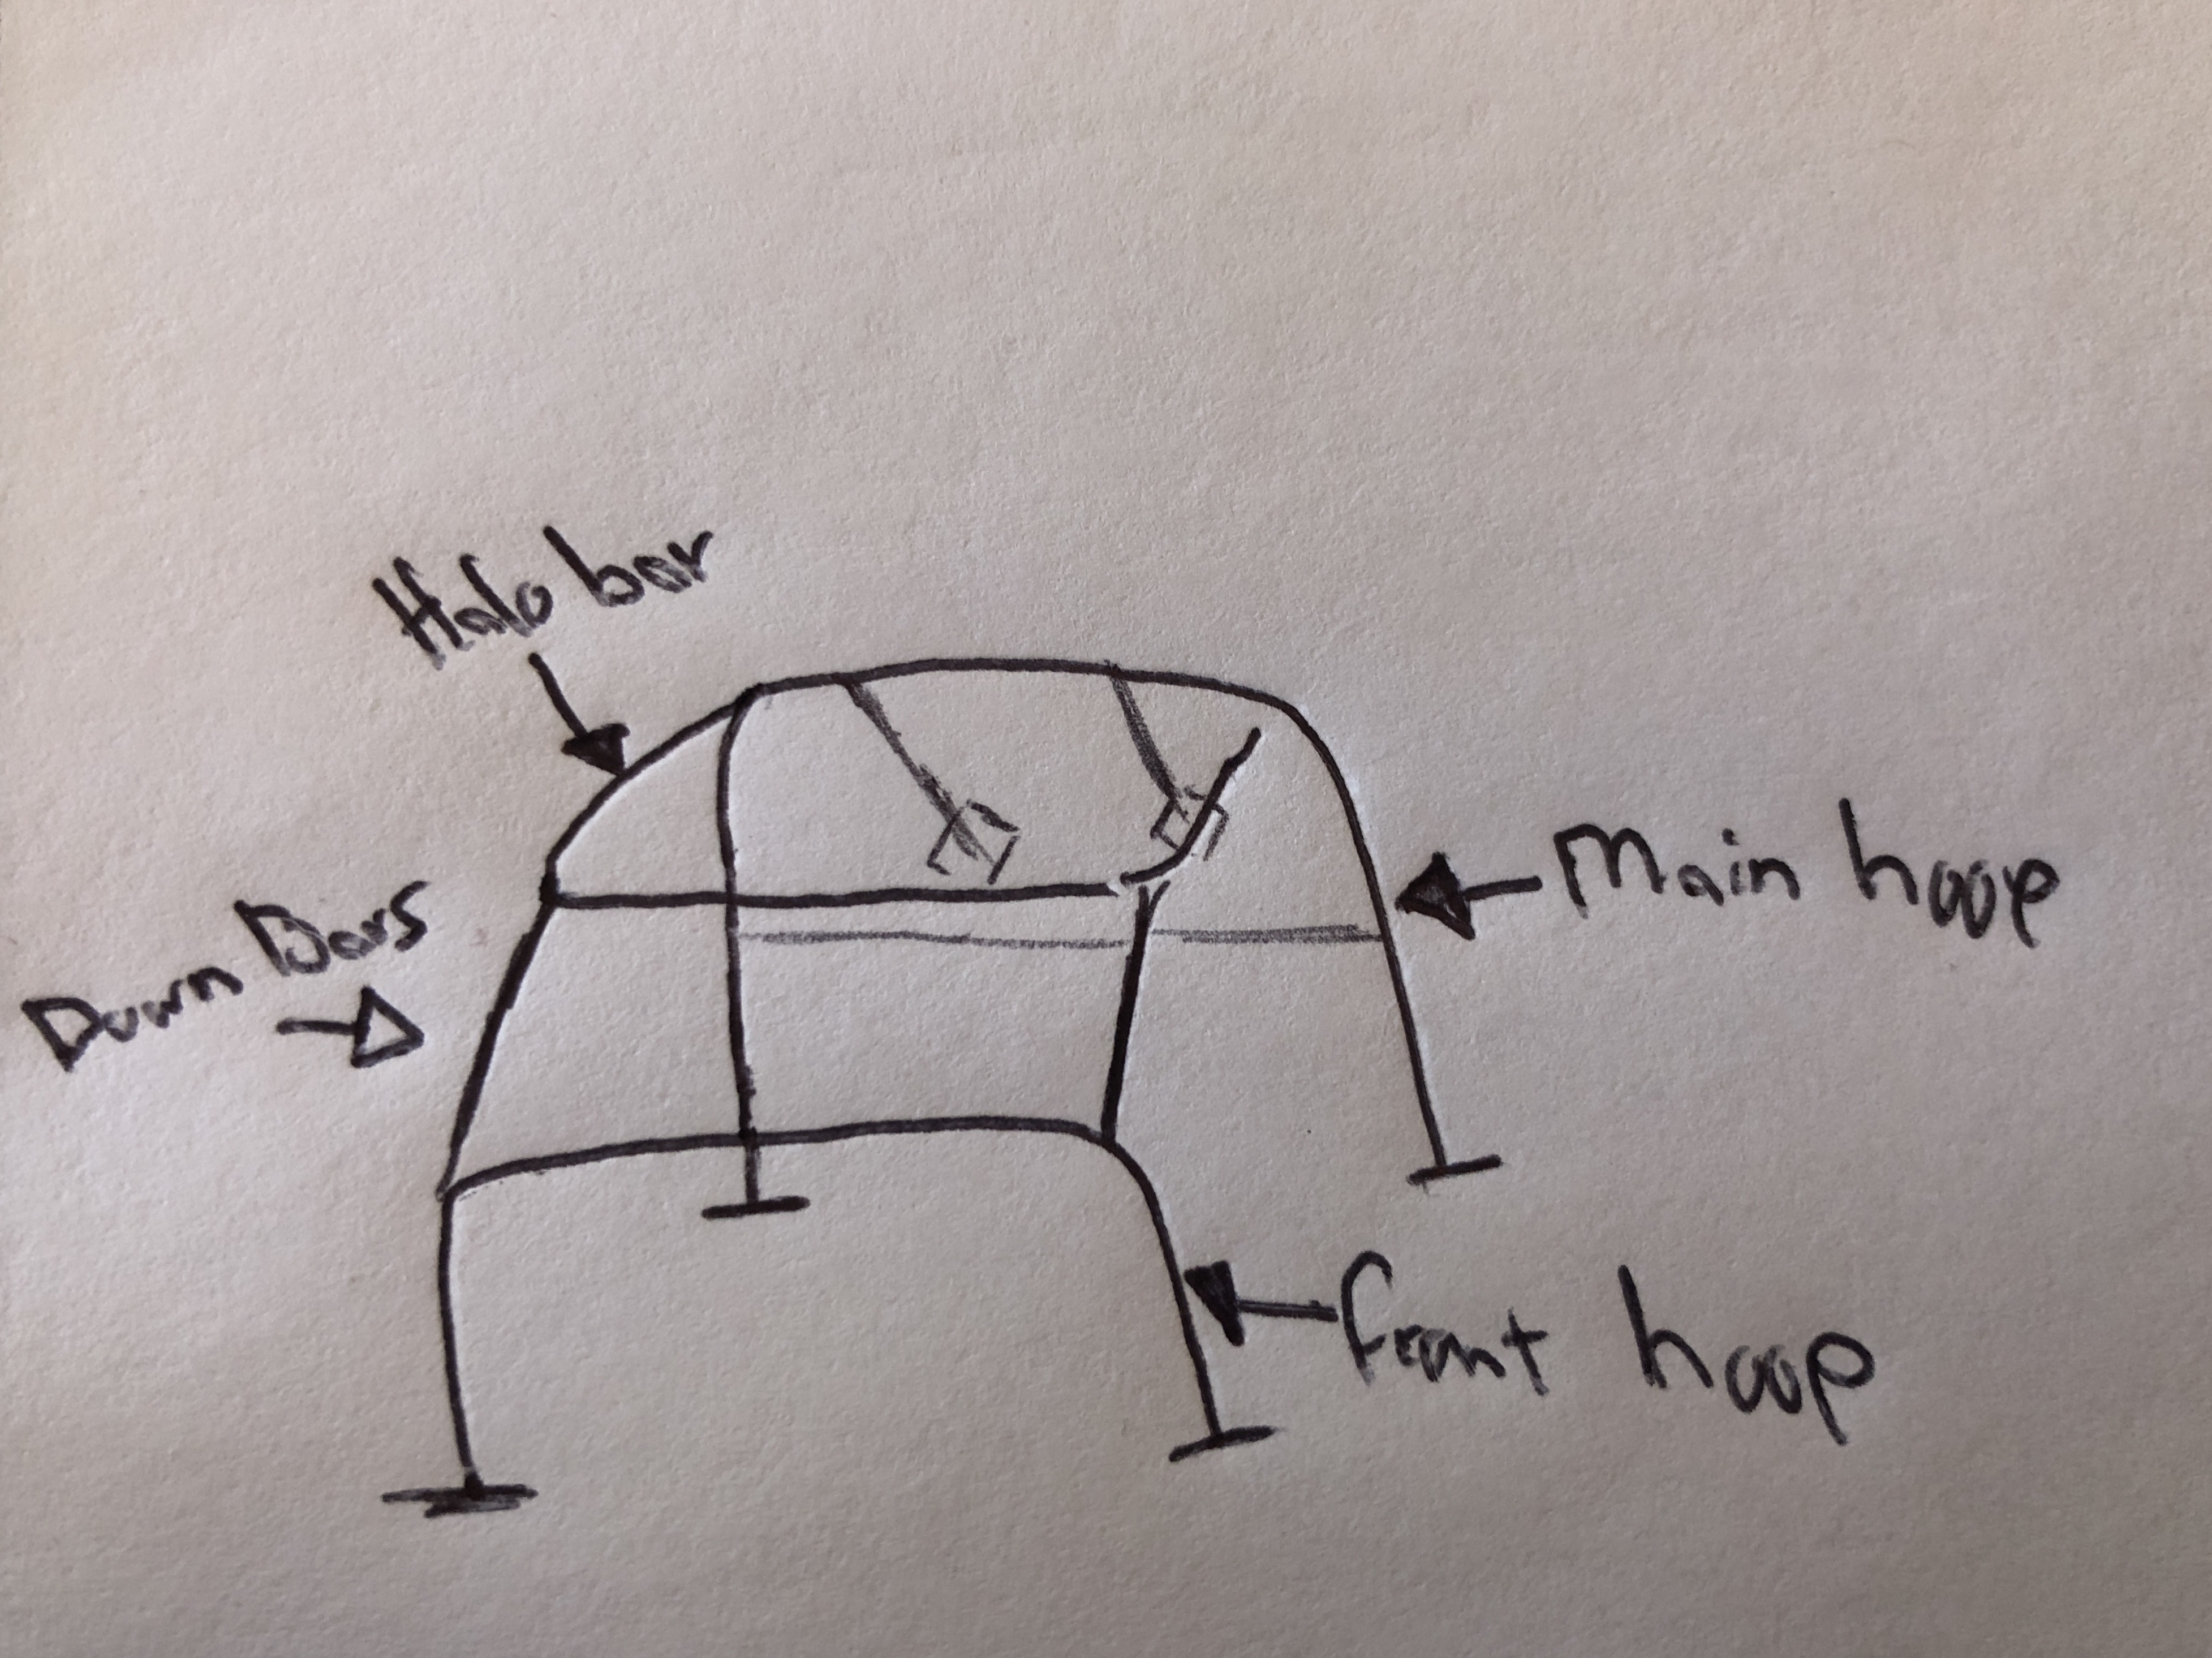 Halo bar
Down Bars
Main hoop
front hoop